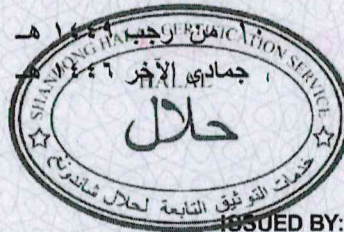 ١٠ من رجب ١٤٤٩ هـ
جمادي الآخر ١٤٤٦ هـ
SHANDONG HALAL CERTIFICATION SERVICE
HALAL
حلال
خدمات التوثيق التابعة لحلال شاندونغ
ISSUED BY: